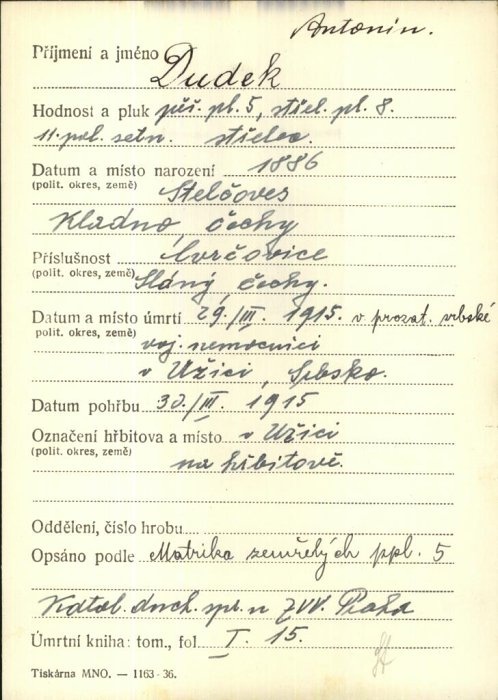 Antonín.
Příjmení a jméno Dudek
Hodnost a pluk pěš. pl. 5, střel. pl. 8.
11. pol. setn. střelec.
Datum a místo narození 1886
(polit. okres, země) Stelčoves
Kladno, čechy
Příslušnost Cvrčovice
(polit. okres, země) Slaný, čechy.
Datum a místo úmrtí 29./III. 1915. v prozat. srbské
polit. okres, země) voj. nemocnici
v Užici, Srbsko.
Datum pohřbu 30./III. 1915
Označení hřbitova a místo v Užici
(polit. okres, země) na hřbitově.
Oddělení, číslo hrobu
Opsáno podle Matrika zemřelých ppl. 5
Katol. duch. spr. u ZVV. Praha
Úmrtní kniha: tom., fol. I. 15.
Tiskárna MNO. — 1163 - 36.